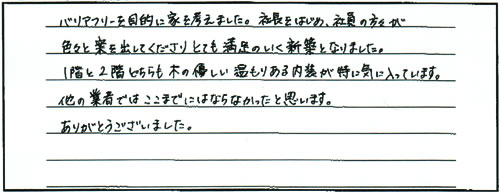 バリアフリーを目的に家を考えました。社長をはじめ、社員の方々が
色々と案を出してくださりとても満足のいく新築となりました。
1階と2階どちらも木の優しい温もりある内装が特に気に入っています。
他の業者ではここまでにはならなかったと思います。
ありがとうございました。